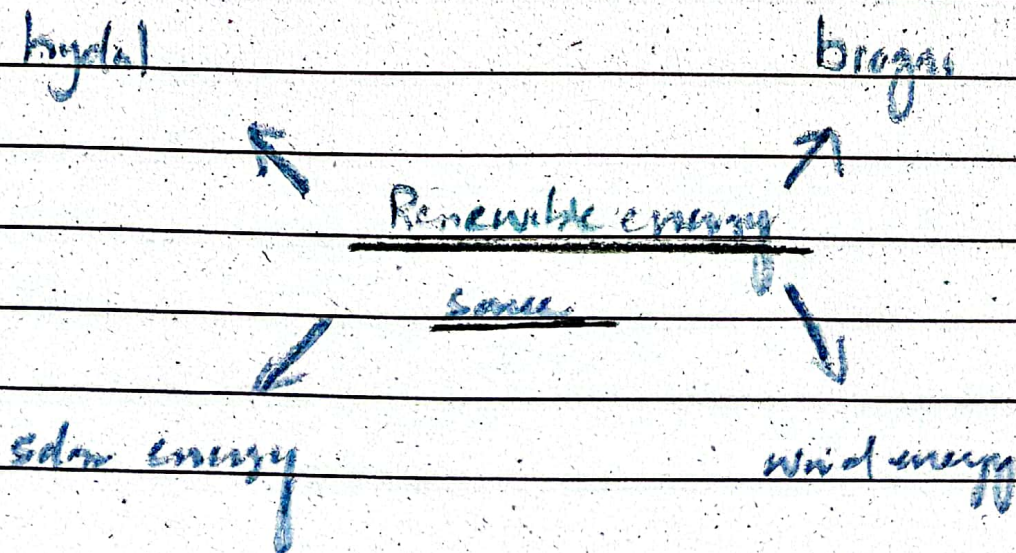 hydal
biogas
Renewable energy
source
solar energy
wind energy